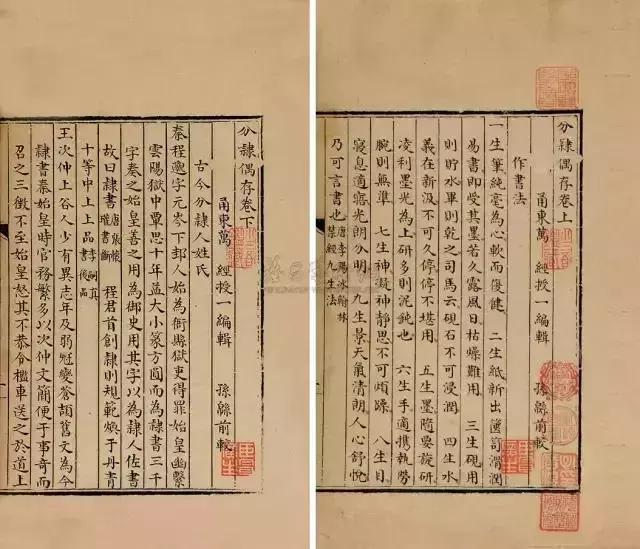 分隸偶存卷上
甬東萬　經授一編輯　孫緜前較
作書法
一生筆純毫為心軟而復健　二生紙新出篋笥潤滑
易書即受其墨若久露風日枯燥難用　三生硯用
則貯水畢則乾之司馬云硯石不可浸潤　四生水
義在新汲不可久停停不堪用　五生墨隨要旋研
凌利墨光為上研多則泥鈍也　六生手適攜執勞
腕則無準　七生神凝神靜思不可煩躁　八生目
寢息適寤光朗分明　九生景天氣清朗人心舒悅
乃可言書也唐李陽冰翰林禁經九生法
分隸偶存卷下
甬東萬　經授一編輯　孫緜前較
古今分隸人姓氏
秦程邈字元岑下邽人始為衙縣獄吏得罪始皇幽繫
雲陽獄中覃思十年益大小篆方圓而為隸書三千
字奏之始皇善之用為御史用其字以為隸人佐書
故曰隸書唐張懷瓘書斷　程君首創隸則規範煥于丹青
十等中上上品李嗣真書後品
王次仲上谷人少有異志年及弱冠變蒼頡舊文為今
隸書秦始皇時官務繁多以次仲文簡便于事奇而
召之三徵不至始皇怒其不恭令檻車送之於道上